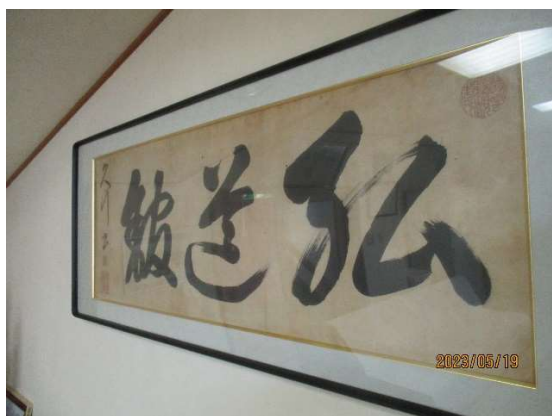 弘道館
2023/05/19